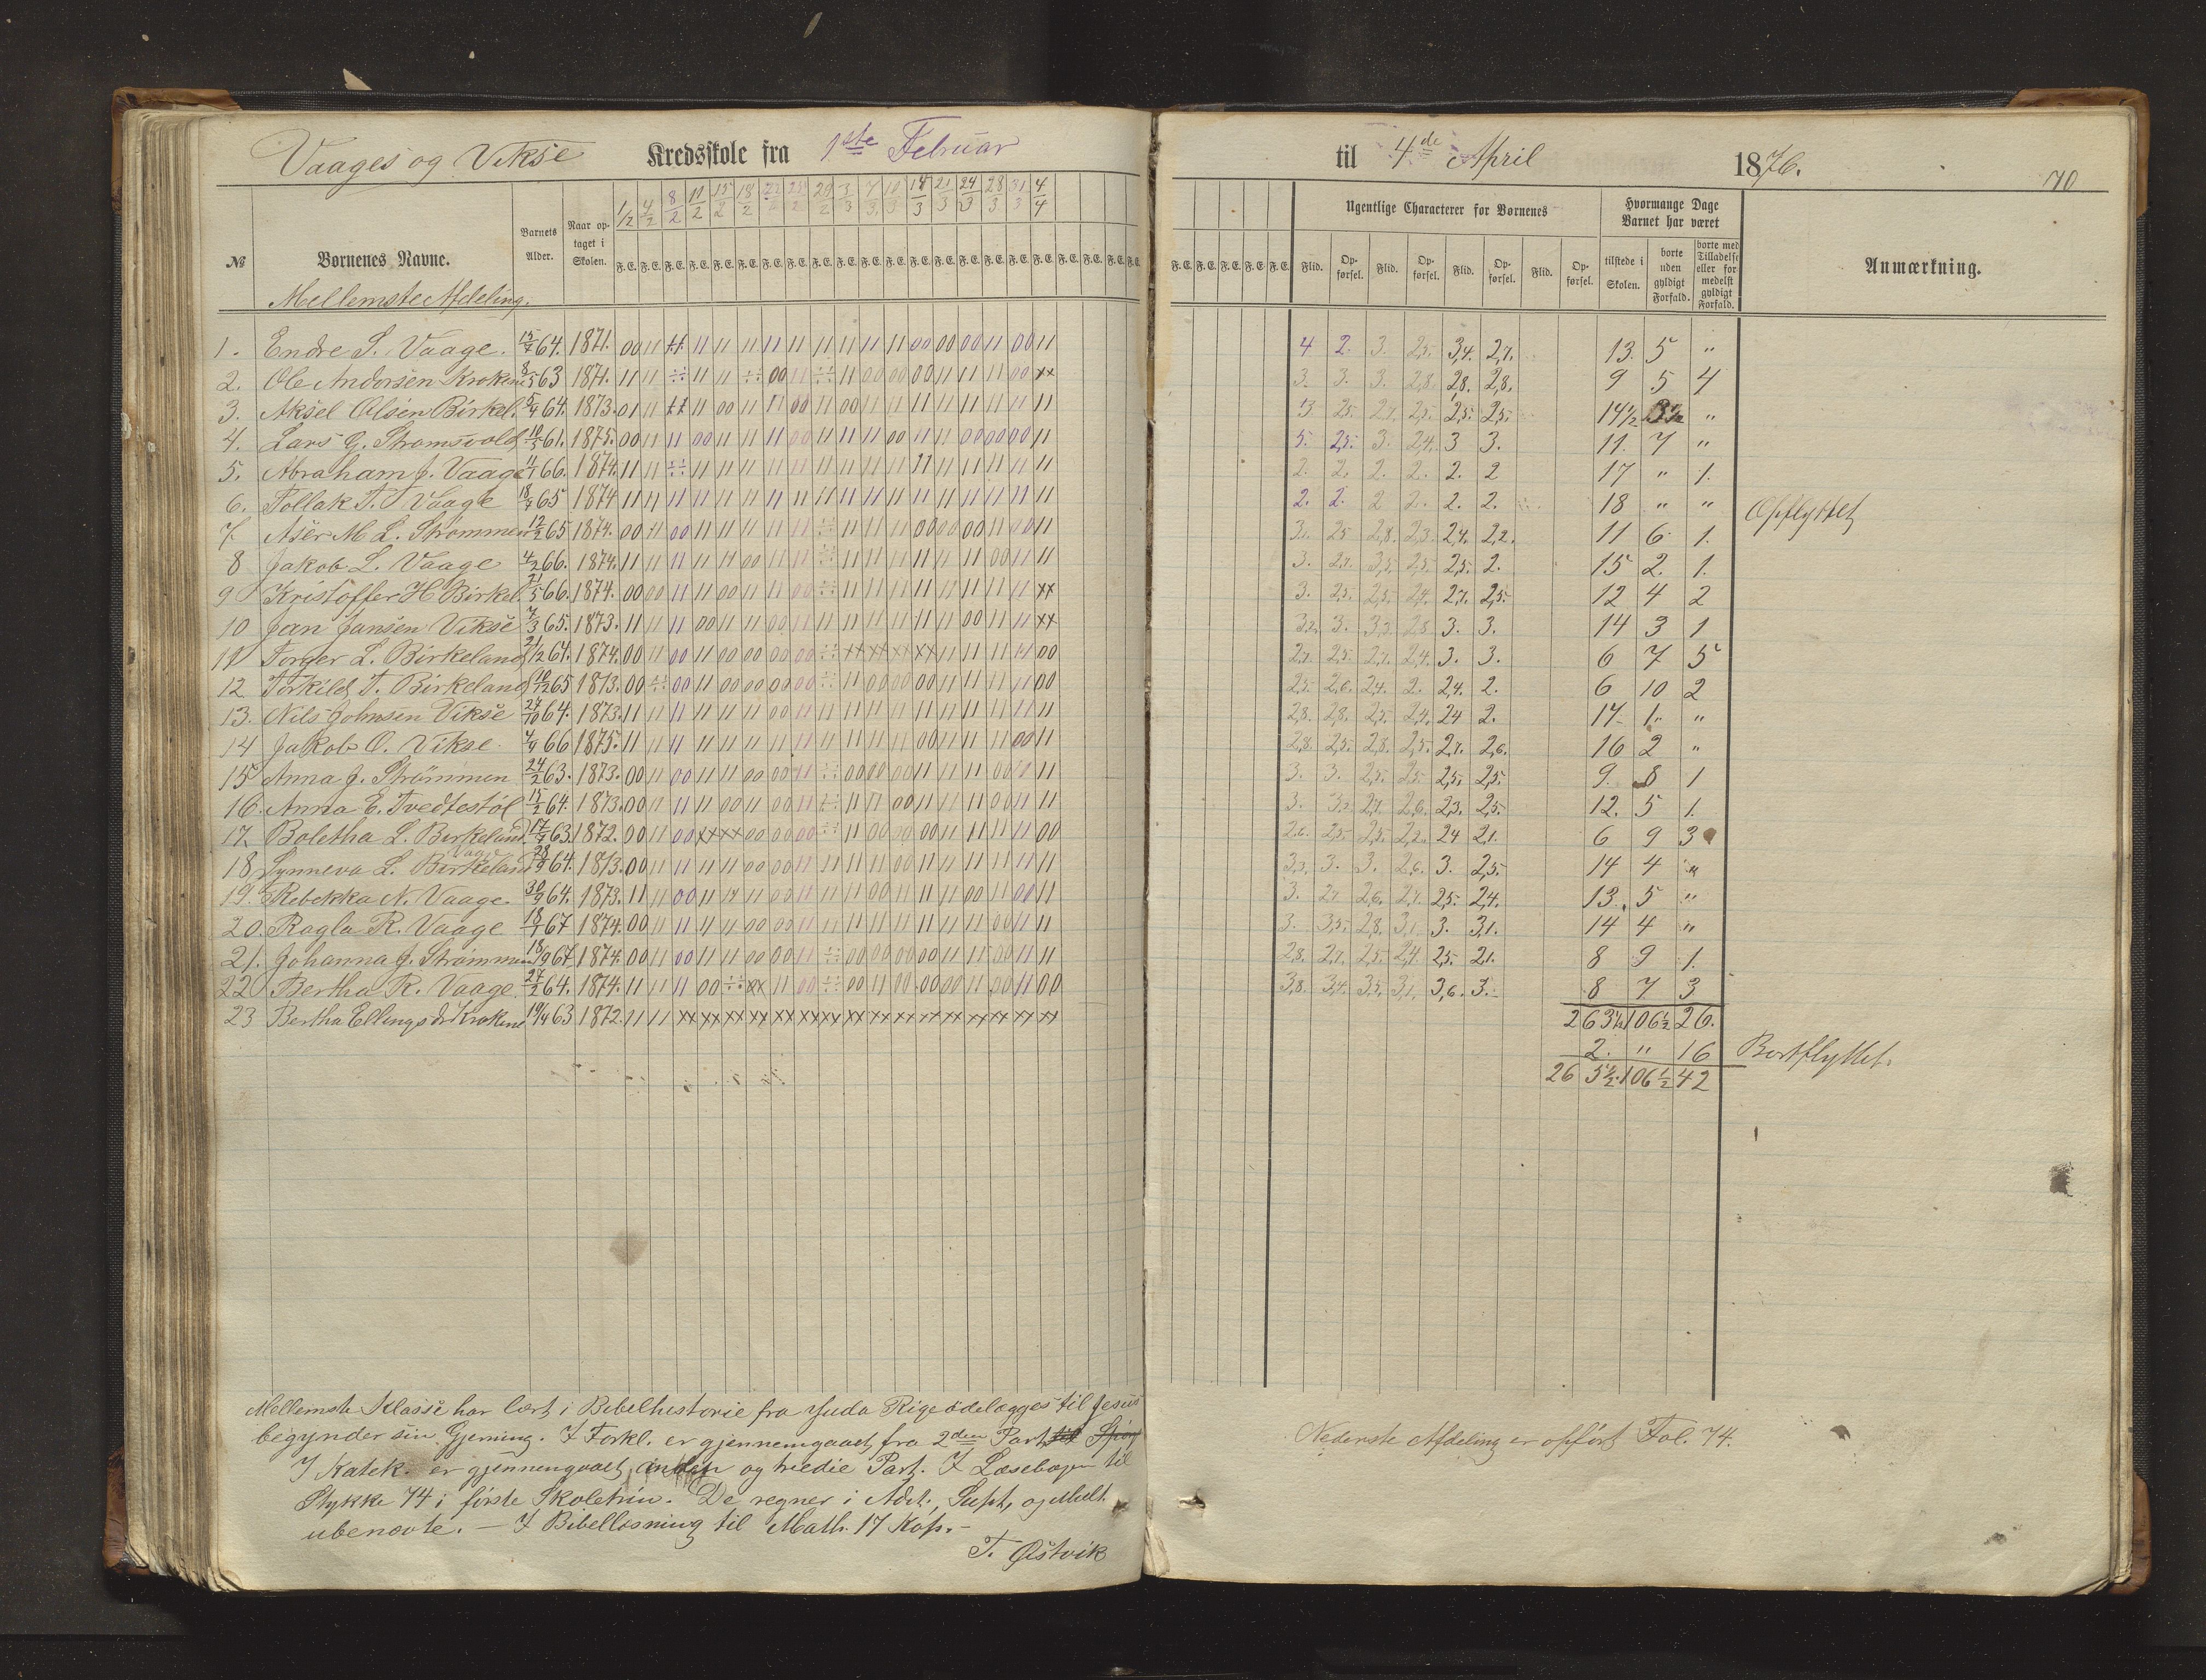 Vaages og Vikse Kredsskole fra 1ste Februar til 4de April 1876.
70
No
Børnenes Navne.
Barnets Alder.
Naar optaget i Skolen.
1/2 4/2 8/2 11/2 15/2 18/2 22/2 25/2 29/2 3/3 7/3 10/3 14/3 21/3 24/3 28/3 31/3 4/4
F. E.
Ugentlige Characterer for Børnenes
Flid. Opførsel. Flid. Opførsel. Flid. Opførsel. Flid. Opførsel.
Hvormange Dage Barnet har været
tilstede i Skolen.
borte uden gyldigt Forfald.
borte med Tilladelse eller formedelst gyldigt Forfald.
Anmærkning.
Mellemste Afdeling.
1. Endre S. Vaage. 15/7 64. 1871. 4 2. 3. 2,5. 3,4. 2,7. 13. 5 "
2. Ole Andersen Krokene 8/5 63 1871. 3. 3. 3. 2,8. 2,8. 2,8. 9 5 4
3. Aksel Olsen Birkel. 5/4 64. 1873. 3. 2,5. 2,7. 2,5. 2,5. 2,5. 14 1/2 3 1/2 "
4. Lars G. Strømsvold 10/5 61. 1875. 5. 2,5. 3. 2,4. 3 3. 11. 7 "
5. Abraham J. Vaage 11/1 66. 1874. 2. 2. 2. 2. 2. 2 17 " 1.
6. Tollak T. Vaage 18/7 65 1874 2. 2. 2 2. 2. 2. 18 " " Opflyttet
7. Aser M L. Strømmen 12/2 65 1874. 3. 2,5 2,8. 2,3. 2,4. 2,2. 11 6 1.
8 Jakob L. Vaage 4/2 66. 1874. 3. 2,7. 3,5. 2,5. 2,5. 2. 15 2. 1.
9 Kristoffer H. Birkel. 21/5 66. 1874. 3. 2,5. 2,5. 2,4. 2,7. 2,5. 12 4 2
10 Jan Jansen Vikse 7/3 65. 1873. 3,2. 3. 3,3. 2,8. 3. 3. 14 3 1
11 Torger L. Birkeland 21/12 64. 1874. 2,7. 2,5. 2,7. 2,4. 3. 3. 6 7 5
12 Torkild T. Birkeland 10/2 65 1873. 2,5. 2,6. 2,4. 2. 2,4. 2. 6 10 2
13. Nils Johnsen Vikse 27/10 64. 1873. 2,8. 2,8. 2,5. 2,4. 2,4 2. 17 1. "
14 Jakob O. Vikse. 7/4 66 1875. 2,8. 2,5. 2,8. 2,5. 2,7. 2,6. 16 2 "
15 Anna J. Strømmen 24/2 63. 1873. 3. 3. 2,5. 2,5. 2,5. 2,5. 9. 8 1
16. Anna E. Tvedtestøl 15/2 64. 1873. 3. 3,2. 2,7. 2,6. 2,3. 2,5. 12. 5 1.
17. Boletha L. Birkeland. 17/4 63. 1872. 2,6. 2,5. 2,5. 2,2. 2,4 2,1. 6 9 3
18. Synneva L. Birkeland 28/9 64. 1873. 3,3. 3. 3. 2,6. 3. 2,5. 14 4 "
19. Rebekka N. Vaage 30/9 64. 1873. 3. 2,7. 2,6. 2,7. 2,5. 2,4. 13. 5 "
20. Ragla R. Vaage 18/1 67 1874. 3. 3,5. 2,8. 3,1. 3. 3,1. 14 4 "
21. Johanna J. Strømmen 18/9 67. 1874. 2,8. 2,7. 2,5. 2,4. 2,5. 2,1. 8 9 1.
22 Bertha R. Vaage. 27/2 64. 1874. 3,8. 3,4. 3,5. 3,1. 3,6. 3. 8 7 3
23 Bertha Ellingsdr Krokene 19/4 63 1872. 263 1/2 106 1/2 26.
2. " 16 Bortflyttet.
265 1/2 106 1/2 42
Mellemste Klasse har lært i Bibelhistorie fra Juda Rige ødelægges til Jesus
begynder sin Gjerning. I Forkl. er gjennemgaaet fra 2den Part
I Katek. er gjennemgaaet anden og tredie Part. I Læsebogen til
Stykke 74 i første Skoletrin. De regner i Add., Subt, og Mult.
ubenævte. — I Bibellæsning til Math. 17 Kap. —
T. Østvik
Nederste Afdeling er opført Fol. 74.